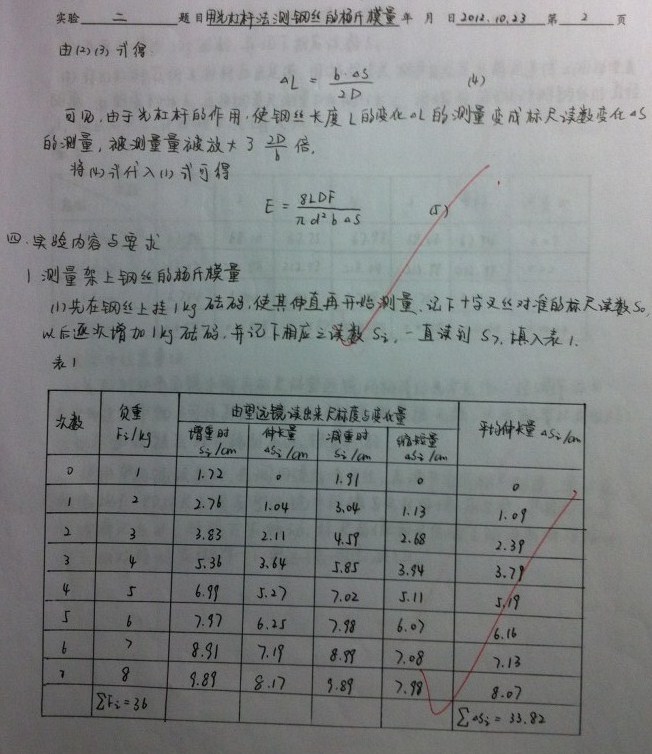 实验 二 题目 用光杠杆法测钢丝的杨氏模量 年 月 日 2012.10.23 第 2 页
由(2)(3)式得
ΔL = b·ΔS / 2D (4)
可见,由于光杠杆的作用,使钢丝长度L的变化ΔL的测量变成标尺读数变化ΔS
的测量,被测量量被放大了 2D/b 倍.
将(4)式代入(1)式可得
E = 8LDF / πd²bΔS (5)
四.实验内容与要求
1 测量架上钢丝的杨氏模量
(1)先在钢丝上挂1kg砝码,使其伸直再开始测量,记下十字叉丝对准的标尺读数S₀,
以后逐次增加1kg砝码,并记下相应之读数Sᵢ,一直读到S₇,填入表1.
表1
次数 负重 Fᵢ/kg 由望远镜读出来尺标度与变化量 平均伸长量ΔSᵢ/cm
增重时 Sᵢ/cm 伸长量 ΔSᵢ/cm 减重时 Sᵢ/cm 缩短量 ΔSᵢ/cm
0 1 1.72 0 1.91 0 0
1 2 2.76 1.04 3.04 1.13 1.09
2 3 3.83 2.11 4.59 2.68 2.39
3 4 5.36 3.64 5.85 3.94 3.79
4 5 6.99 5.27 7.02 5.11 5.19
5 6 7.97 6.25 7.98 6.07 6.16
6 7 8.91 7.19 8.99 7.08 7.13
7 8 9.89 8.17 9.89 7.98 8.07
ΣFᵢ=36 ΣΔSᵢ=33.82